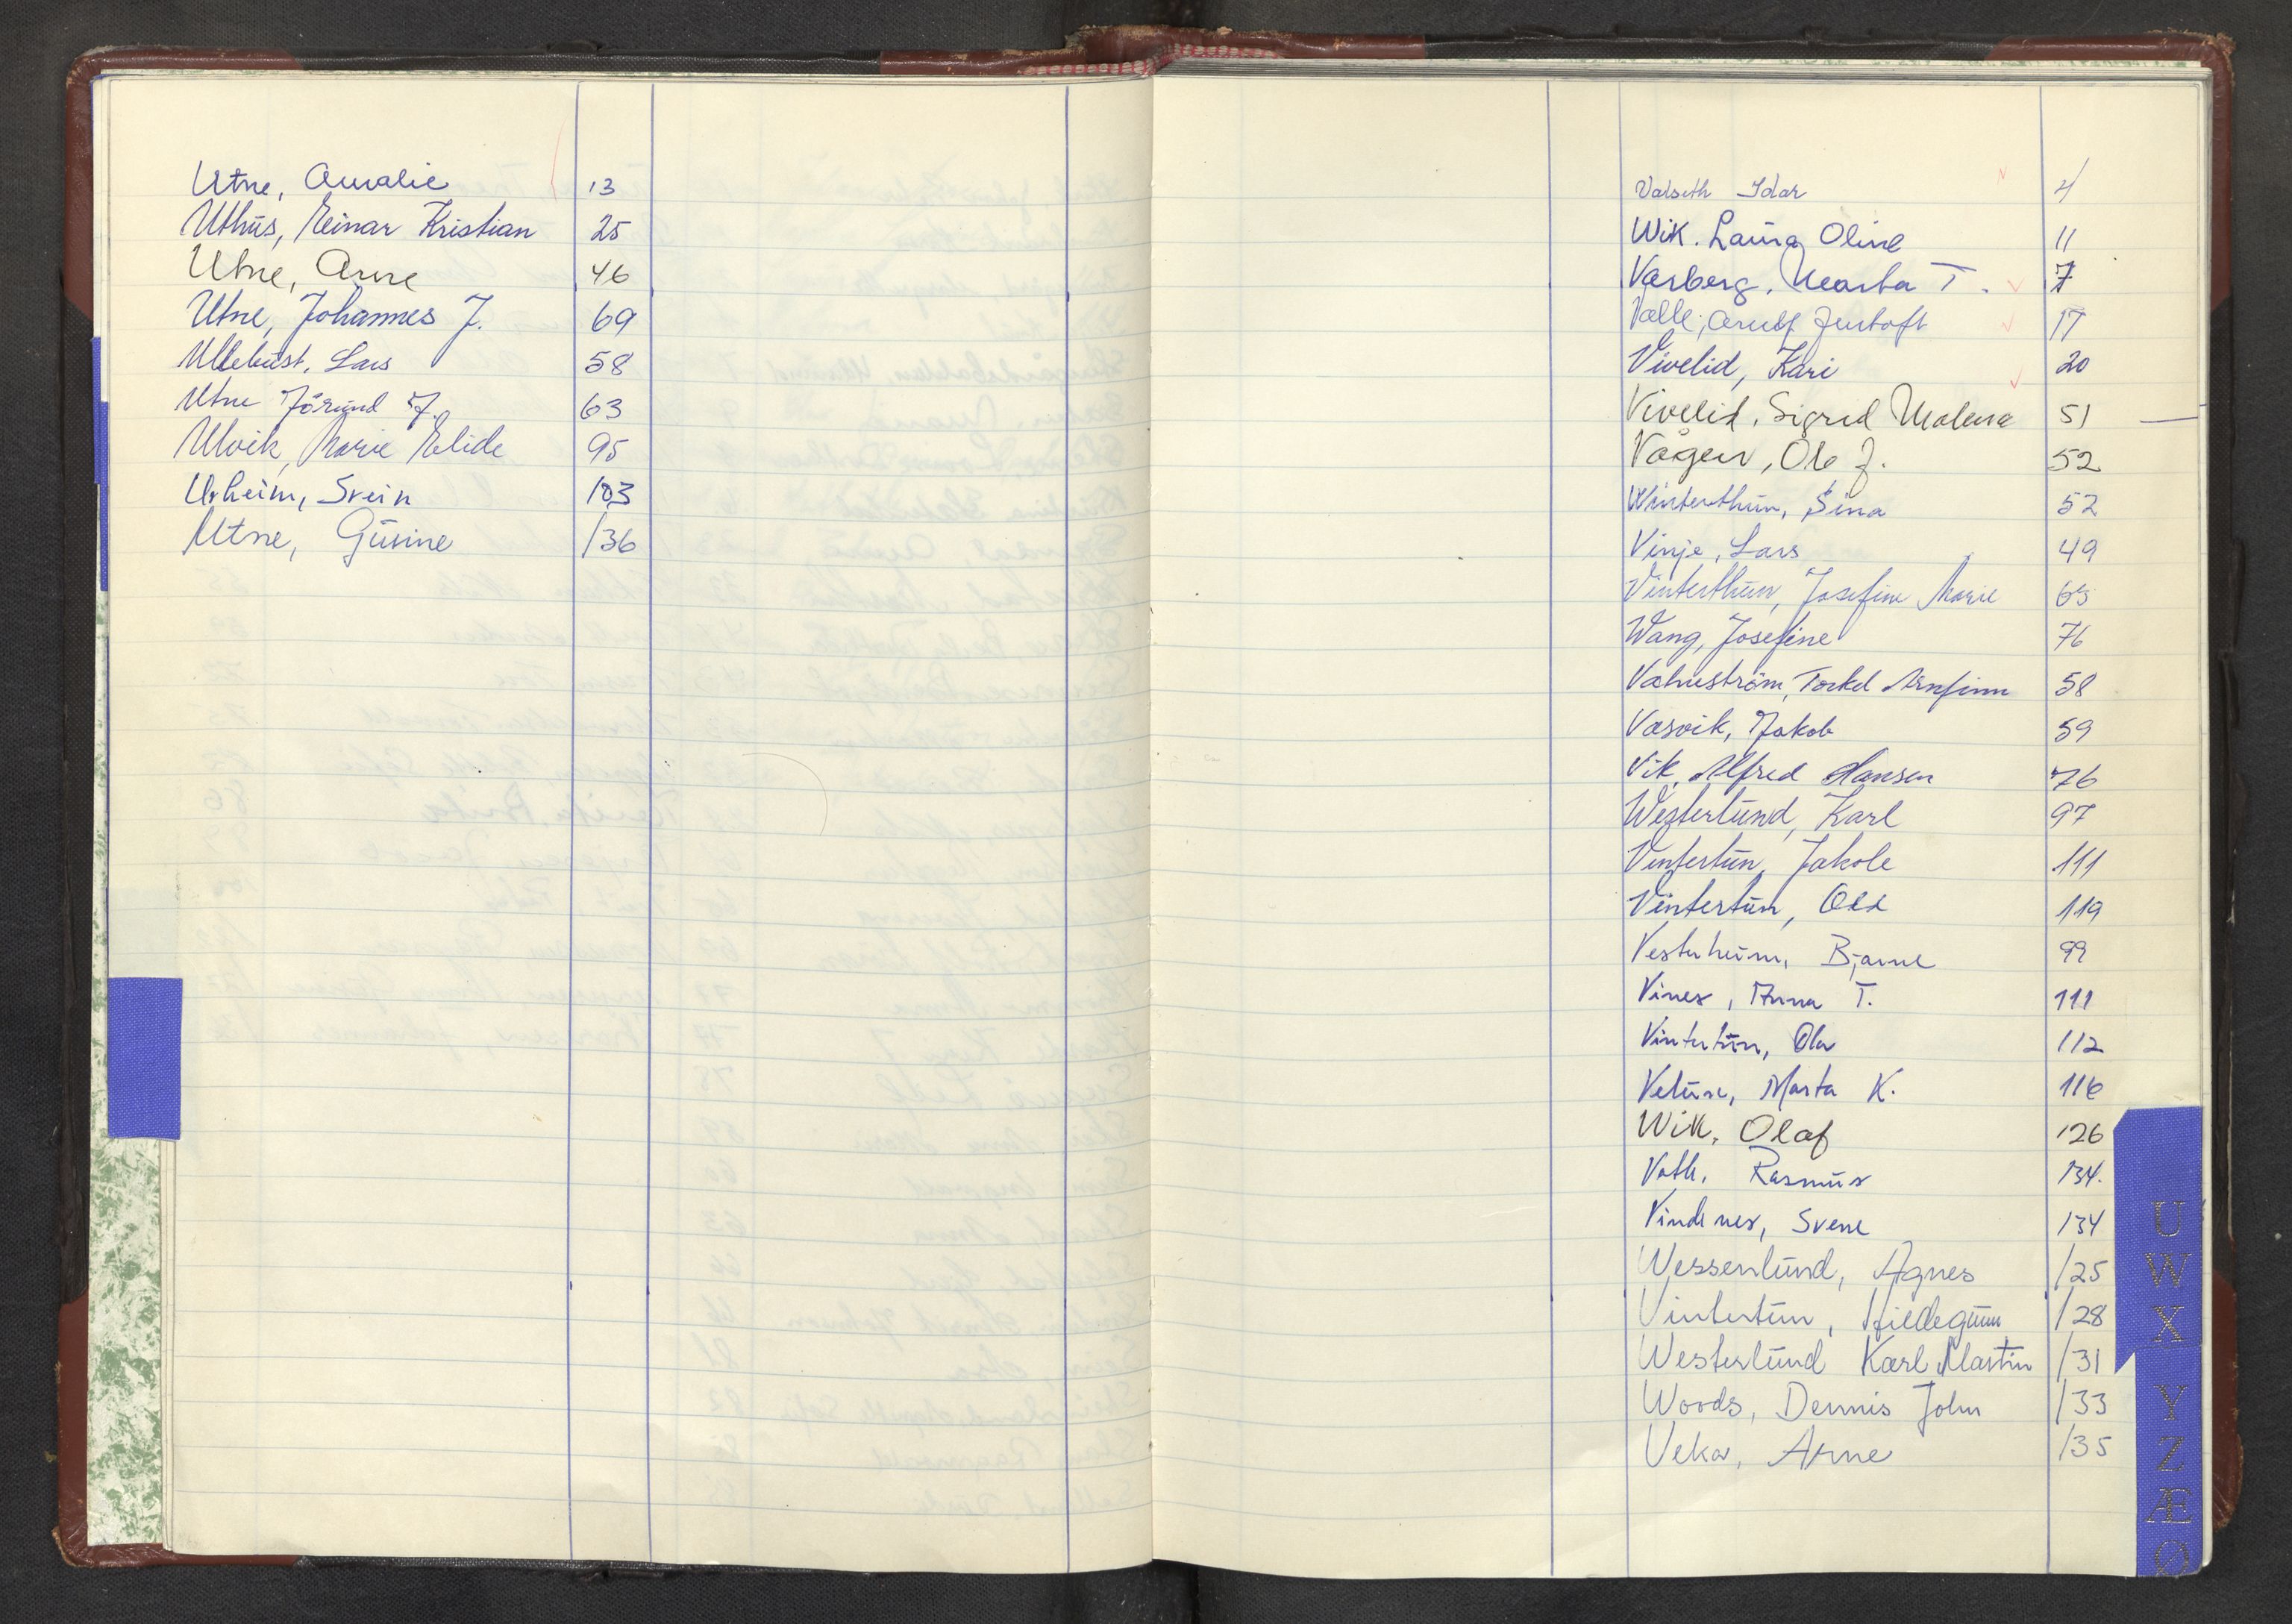 Utne, Amalie 13
Uthus, Einar Kristian 25
Utne, Arne 46
Utne, Johannes J. 69
Ullebust, Lars 58
Utne Jörund J. 63
Ulvik, Marie Elide 95
Urheim, Svein 103
Utne, Gurine 136
Valseth Idar 4
Wik. Laura Oline 11
Varberg, Marta T. 7
Valle, Arulf 17
Vivelid, Kari 20
Vivelid, Sigrid Malena 51
Vågen, Ola J. 52
Winterthun, Sina 52
Vinje, Lars 49
Vinterthun, Josefine Marie 65
Wang, Josefine 76
Torkel Arnfinn 58
Vasvik, Jakob 59
Vik, Alfred Hansen 76
Westerlund, Karl 97
Vintertun, Jakob 111
Vintertun, Odd 119
Vesterheim, Bjarne 99
Vines, Anna T. 111
Vintertun, Ola 112
Marta K. 116
Wik, Olaf 126
Rasmus 134.
Vindenes, Svene 134
Wessenlund, Agnes 125
Vintertun, Hildegunn 128
Westerlund Karl Martin 131
Woods, Dennis John 133
Veka, Arne 135
U
W
X
Y
Z
Æ
Ø